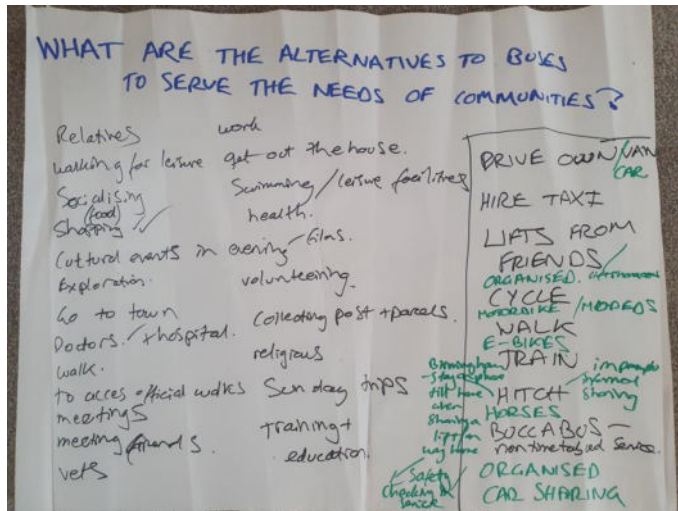 WHAT ARE THE ALTERNATIVES TO BUSES
TO SERVE THE NEEDS OF COMMUNITIES?
Relatives
walking for leisure
Socialising
(food)
Shopping
Cultural events in evening / films.
Exploration.
Go to town
Doctors. / + hospital.
walk.
to acces official walks
meetings
meeting friends.
vets
work
get out the house.
Swimming / leisure facilities
health.
volunteering.
Collecting post + parcels.
religious
Sunday trips
Training +
education.
DRIVE OWN / VAN
CAR
HIRE TAXI
LIFTS FROM
FRIENDS /
ORGANISED.
CYCLE
MOTORBIKE / MOPEDS
WALK
E-BIKES
TRAIN
HITCH
HORSES
informal
sharing
Birmingham
till have
sharing a
lift on
way home
BOCCABUS -
non timetabled service.
Safety
Checking
service
ORGANISED
CAR SHARING